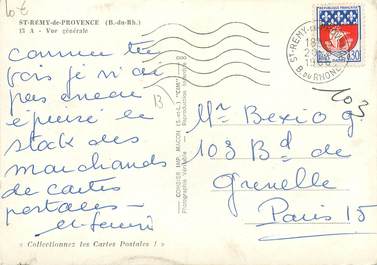 10 €
ST-REMY-de-PROVENCE (B.-du-Rh.)
13 A - Vue générale
comme tu
vois je n'ai
pas encore
épuisé le
stock des
marchands
de cartes
postales -
" Collectionnez les Cartes Postales ! "
13
COMBIER IMP. MACON (S.-et-L.) "CIM"
Photographie Véritable - Reproduction
ST-REMY
B. DU RHONE
REPUBLIQUE FRANÇAISE
0,30
103.
Mr Bexio G
103 Bd de
Grenelle
Paris 15